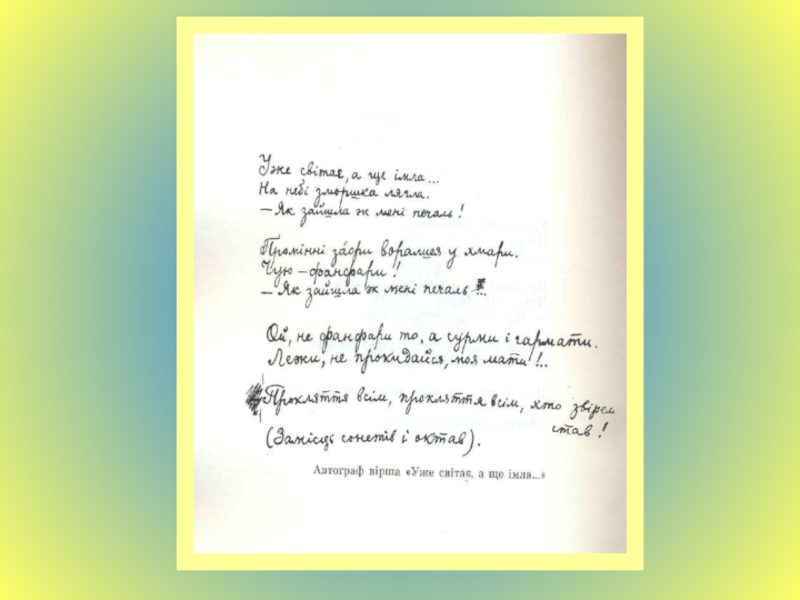 Уже світає, а ще імла...
На небі зморшка лягла.
— Як зайшла ж мені печаль!
Промінні заори воралися у хмари.
Чую — фанфари!
— Як зайшла ж мені печаль!..
Ой, не фанфари то, а сурми і гармати.
Лежи, не прокидайся, моя мати!..
Прокляття всім, прокляття всім, хто звірем
став!
(Замісць сонетів і октав).
Автограф вірша «Уже світає, а ще імла...»